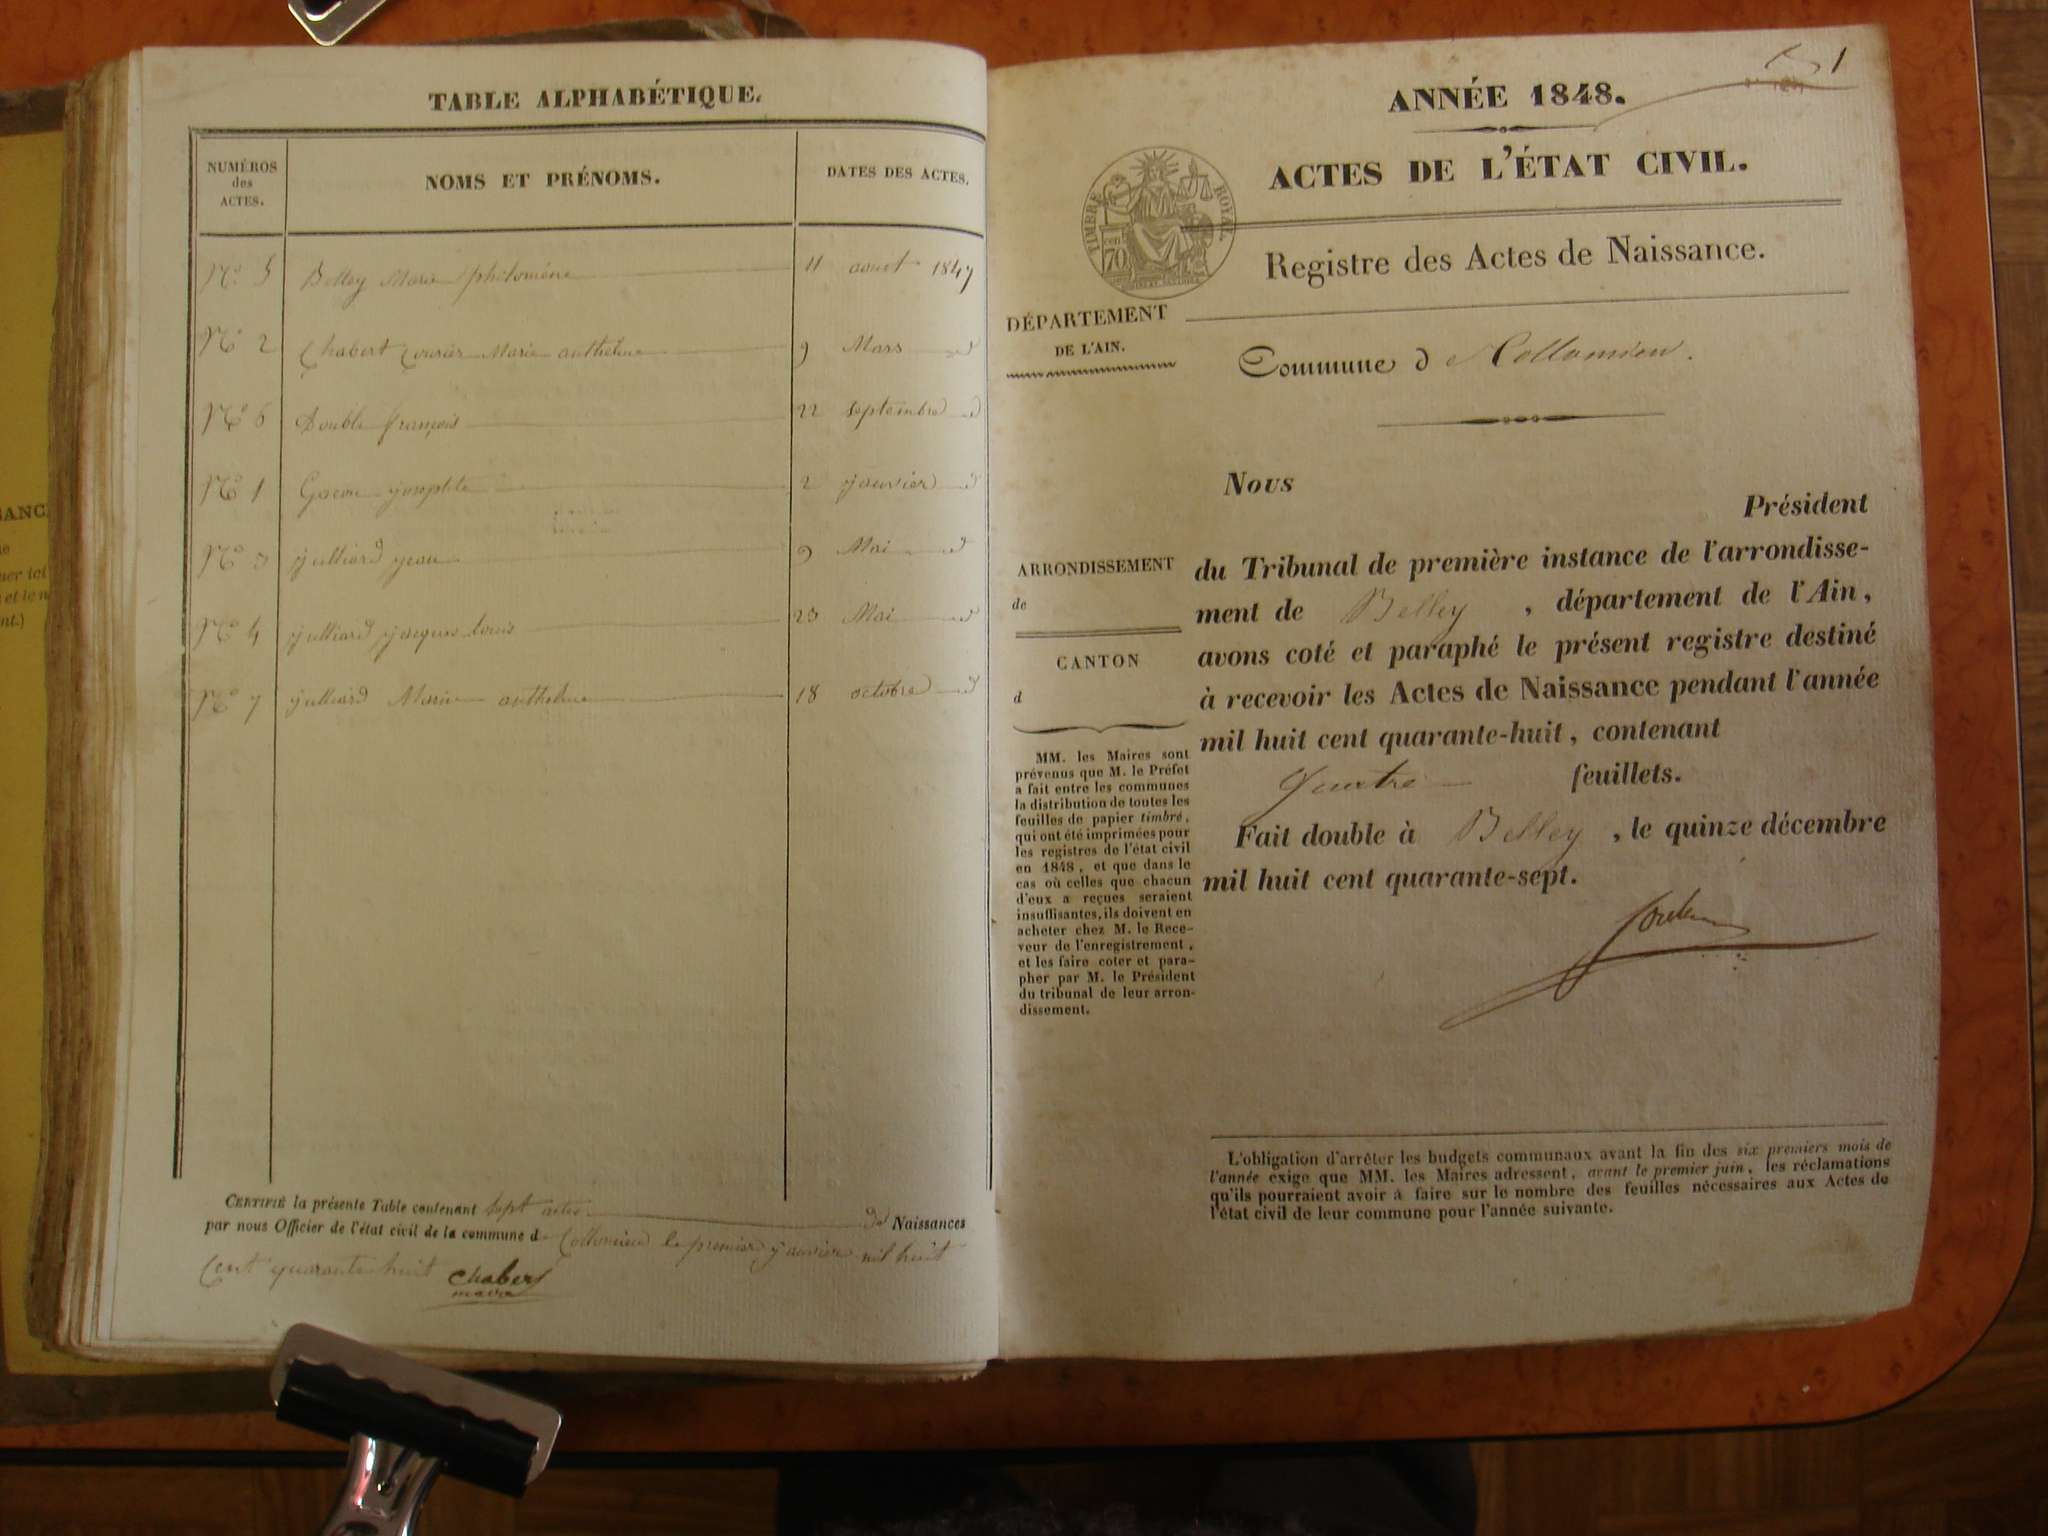 TABLE ALPHABÉTIQUE.
NUMÉROS
des
ACTES.
NOMS ET PRÉNOMS.
DATES DES ACTES.
No 5 Belley Marie philomène 11 aout 1847
No 2 Chabert Cousier Marie anthelme 9 Mars d
No 6 Double françois 22 septembre d
No 1 Gocon josephte 2 janvier d
No 3 julliard jean 9 Mai d
No 4 julliard jacques louis 23 Mai d
No 7 julliard Marie anthelme 18 octobre d
CERTIFIÉ la présente Table contenant sept actes de Naissances
par nous Officier de l'état civil de la commune de Collomieu le premier janvier mil huit
Cent quarante huit Chabert
maire
1
ANNÉE 1848.
ACTES DE L'ÉTAT CIVIL.
TIMBRE ROYAL
cen
70
Registre des Actes de Naissance.
DÉPARTEMENT
DE L'AIN.
Commune d Collomieu.
Nous
Président
du Tribunal de première instance de l'arrondisse-
ment de Belley , département de l'Ain,
avons coté et paraphé le présent registre destiné
à recevoir les Actes de Naissance pendant l'année
mil huit cent quarante-huit, contenant
quatre feuillets.
Fait double à Belley , le quinze décembre
mil huit cent quarante-sept.
ARRONDISSEMENT
de
CANTON
d
MM. les Maires sont
prévenus que M. le Préfet
a fait entre les communes
la distribution de toutes les
feuilles de papier timbré,
qui ont été imprimées pour
les registres de l'état civil
en 1848, et que dans le
cas où celles que chacun
d'eux a reçues seraient
insuffisantes, ils doivent en
acheter chez M. le Rece-
veur de l'enregistrement,
et les faire coter et para-
pher par M. le Président
du tribunal de leur arron-
dissement.
L'obligation d'arrêter les budgets communaux avant la fin des six premiers mois de
l'année exige que MM. les Maires adressent, avant le premier juin, les réclamations
qu'ils pourraient avoir à faire sur le nombre des feuilles nécessaires aux Actes de
l'état civil de leur commune pour l'année suivante.